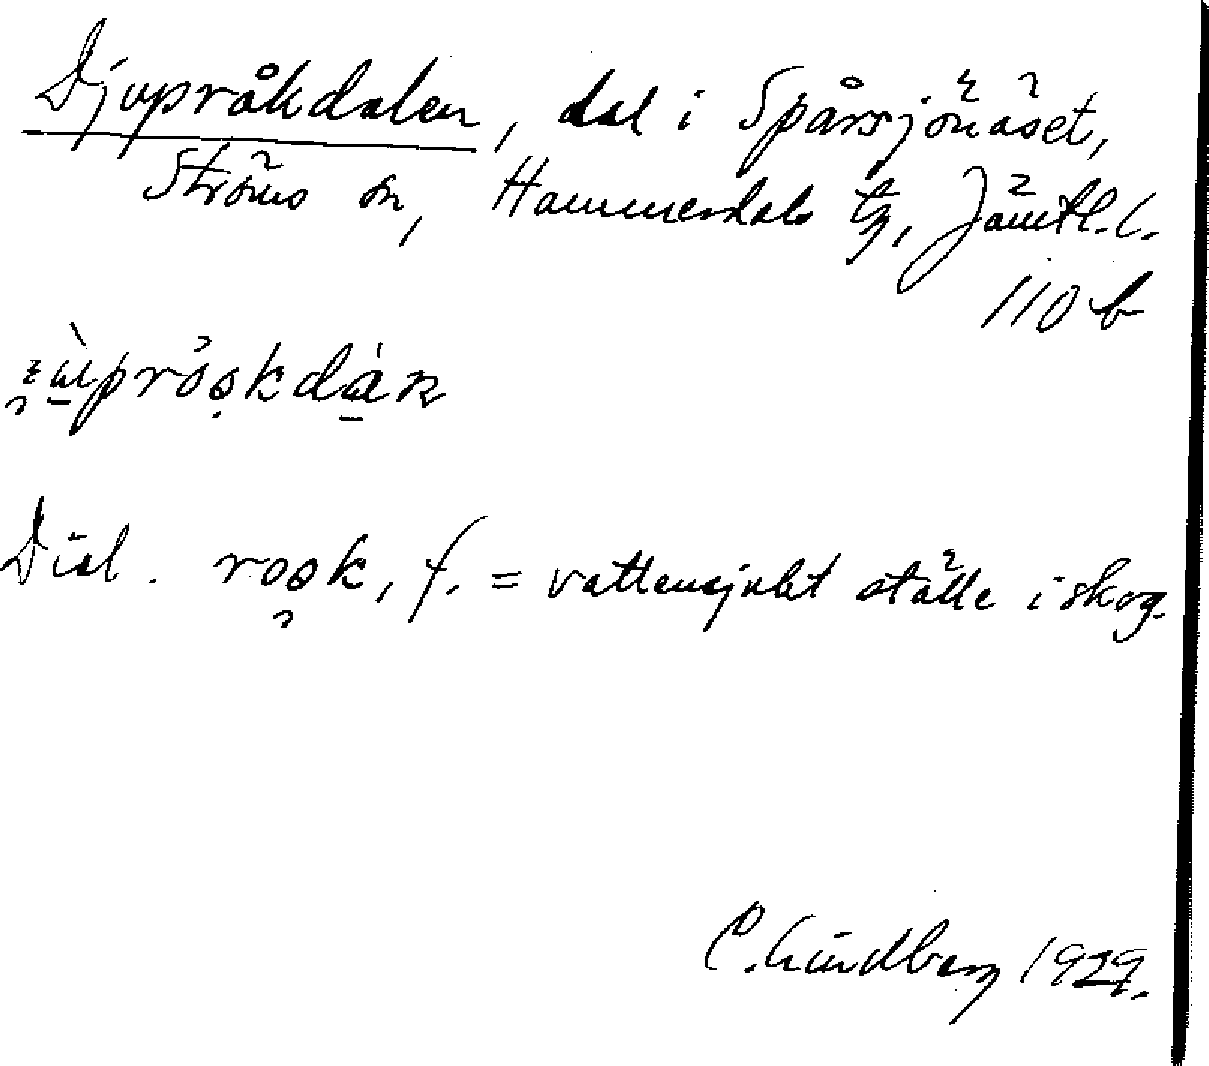 Djupråkdalen, dal i Spårrsjönäset,
Ströms sn, Hammerdals tg, Jämtl. l.
110 b
Dial. rosk, f. = vattensjukt ställe i skog.
C. Lindberg 1929.